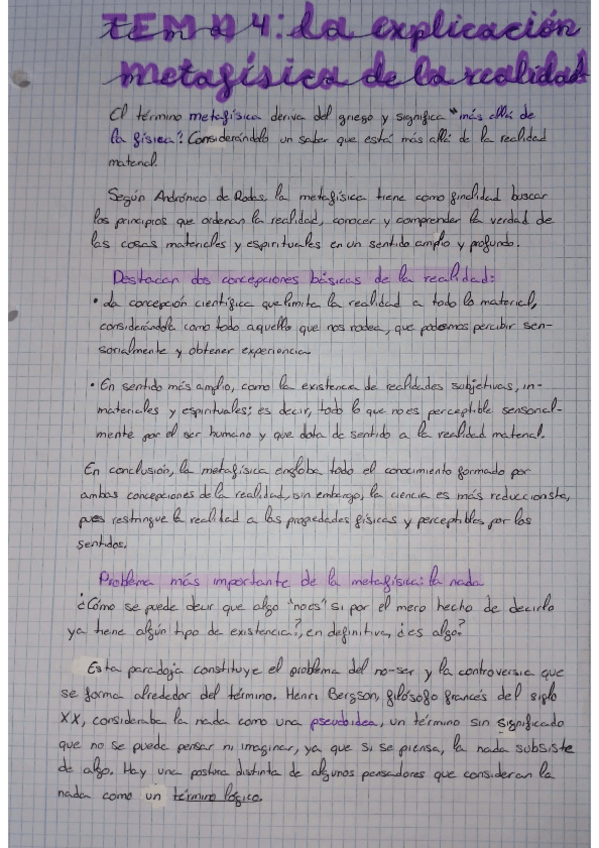 TEMA 4: La explicación
metafísica de la realidad
El término metafísica deriva del griego y significa "más allá de
la física". Considerándolo un saber que está más allá de la realidad
material.
Según Andrónico de Rodas, la metafísica tiene como finalidad buscar
los principios que ordenan la realidad, conocer y comprender la verdad de
las cosas materiales y espirituales en un sentido amplio y profundo.
Destacan dos concepciones básicas de la realidad:
• La concepción científica que limita la realidad a todo lo material,
considerándola como todo aquello que nos rodea, que podemos percibir sen-
sorialmente y obtener experiencia
• En sentido más amplio, como la existencia de realidades subjetivas, in-
materiales y espirituales; es decir, todo lo que no es perceptible sensorial-
mente por el ser humano y que dota de sentido a la realidad material.
En conclusión, la metafísica engloba todo el conocimiento formado por
ambas concepciones de la realidad, sin embargo, la ciencia es más reduccionista,
pues restringue la realidad a las propiedades físicas y perceptibles por los
sentidos.
Problema más importante de la metafísica: la nada
¿Cómo se puede decir que algo "no es" si por el mero hecho de decirlo
ya tiene algún tipo de existencia?, en definitiva, ¿es algo?
Esta paradoja constituye el problema del no-ser y la controversia que
se forma alrededor del término. Henri Bergson, filósofo francés del siglo
XX, consideraba la nada como una pseudoidea, un término sin significado
que no se puede pensar ni imaginar, ya que si se piensa, la nada subsiste
de algo. Hay una postura distinta de algunos pensadores que consideran la
nada como un término lógico.